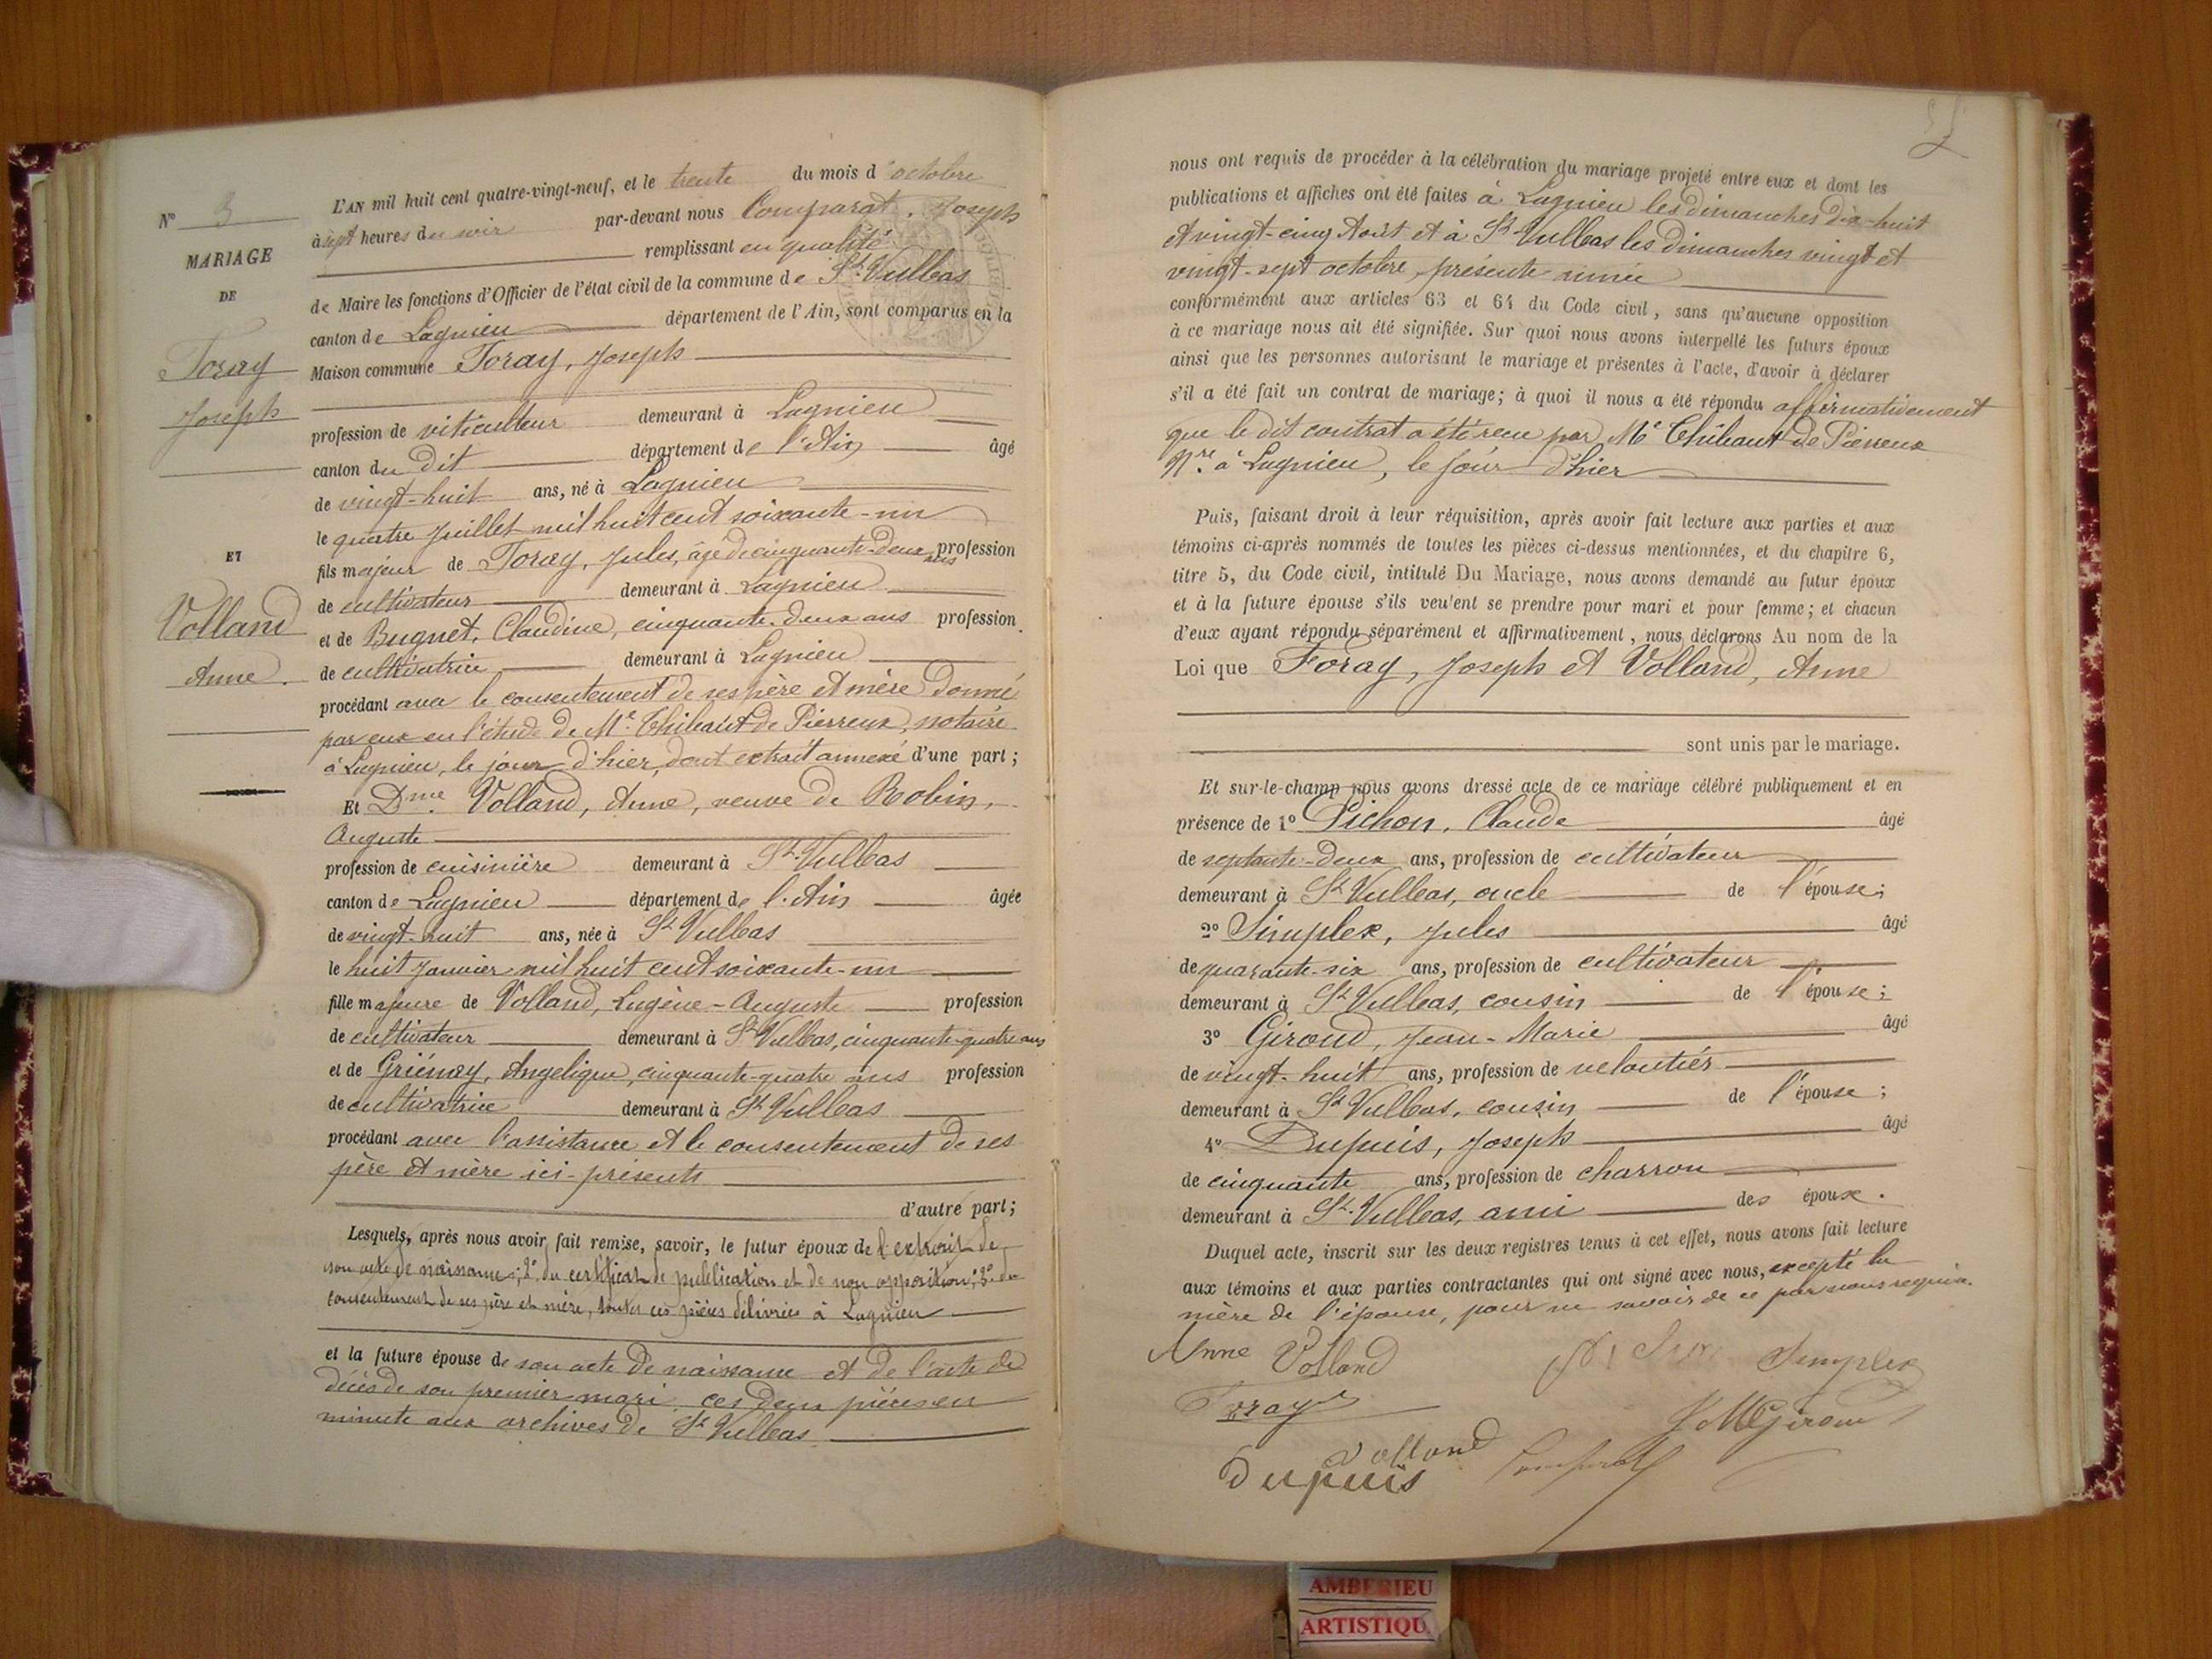 N° 3
MARIAGE
DE
Foray
Joseph
ET
Volland
Anne.
L'AN mil huit cent quatre-vingt-neuf, et le trente du mois d'octobre
à sept heures du soir par-devant nous Comparat, Joseph
remplissant en qualité
de Maire les fonctions d'Officier de l'état civil de la commune de St Vulbas
canton de Lagnieu département de l'Ain, sont comparus en la
Maison commune Foray, Joseph
profession de viticulteur demeurant à Lagnieu
canton du dit département de l'Ain âgé
de vingt-huit ans, né à Lagnieu
le quatre Juillet mil huit cent soixante-un
fils majeur de Foray, Jules, âgé de cinquante-deux ans profession
de cultivateur demeurant à Lagnieu
et de Bugnet, Claudine, cinquante-deux ans profession
de cultivatrice demeurant à Lagnieu
procédant avec le consentement de ses père et mère donné
par eux en l'étude de Me Thibaut de Pierreux, notaire
à Lagnieu, le jour d'hier, dont extrait annexé d'une part;
Et Dme. Volland, Anne, veuve de Robin,
Auguste
profession de cuisinière demeurant à St Vulbas
canton de Lagnieu département de l'Ain âgée
de vingt-huit ans, née à St Vulbas
le huit Janvier mil huit cent soixante-un
fille majeure de Volland, Eugène-Auguste profession
de cultivateur demeurant à St Vulbas, cinquante-quatre ans
et de Angelique, cinquante-quatre ans profession
de cultivatrice demeurant à St Vulbas
procédant avec l'assistance et le consentement de ses
père et mère ici-présents
d'autre part;
Lesquels, après nous avoir fait remise, savoir, le futur époux de l'extrait de
son acte de naissance; 2° du certificat de publication et de non opposition; 3° du
consentement de ses père et mère, toutes ces pièces délivrées à Lagnieu
et la future épouse de son acte de naissance et de l'acte de
décès de son premier mari, ces deux pièces en
minute aux archives de St Vulbas
nous ont requis de procéder à la célébration du mariage projeté entre eux et dont les
publications et affiches ont été faites à Lagnieu les dimanches dix-huit
et vingt-cinq Août et à St Vulbas les dimanches vingt et
vingt-sept octobre, présente année
conformément aux articles 63 et 64 du Code civil, sans qu'aucune opposition
à ce mariage nous ait été signifiée. Sur quoi nous avons interpellé les futurs époux
ainsi que les personnes autorisant le mariage et présentes à l'acte, d'avoir à déclarer
s'il a été fait un contrat de mariage; à quoi il nous a été répondu affirmativement
que le dit contrat a été recu par Me Thibaut de Pierreux
Nre. à Lagnieu, le jour d'hier
Puis, faisant droit à leur réquisition, après avoir fait lecture aux parties et aux
témoins ci-après nommés de toutes les pièces ci-dessus mentionnées, et du chapitre 6,
titre 5, du Code civil, intitulé Du Mariage, nous avons demandé au futur époux
et à la future épouse s'ils veulent se prendre pour mari et pour femme; et chacun
d'eux ayant répondu séparément et affirmativement, nous déclarons Au nom de la
Loi que Foray, Joseph et Volland, Anne
sont unis par le mariage.
Et sur-le-champ nous avons dressé acte de ce mariage célébré publiquement et en
présence de 1° Pichon, Claude âgé
de septante-deux ans, profession de cultivateur
demeurant à St Vulbas, oncle de l'épouse;
2° Simplex, Jules âgé
de quarante-six ans, profession de cultivateur
demeurant à St Vulbas, cousin de l'épouse;
3° Giroud, Jean-Marie âgé
de vingt-huit ans, profession de veloutier
demeurant à St Vulbas, cousin de l'épouse;
4° Dupuis, Joseph âgé
de cinquante ans, profession de charron
demeurant à St Vulbas, ami des époux.
Duquel acte, inscrit sur les deux registres tenus à cet effet, nous avons fait lecture
aux témoins et aux parties contractantes qui ont signé avec nous, excepté la
mère de l'épouse, pour ne savoir de ce par nous requise.
Anne Volland
Simplex
Foray
J M Giroud
Volland
Dupuis
AMBERIEU
ARTISTIQU